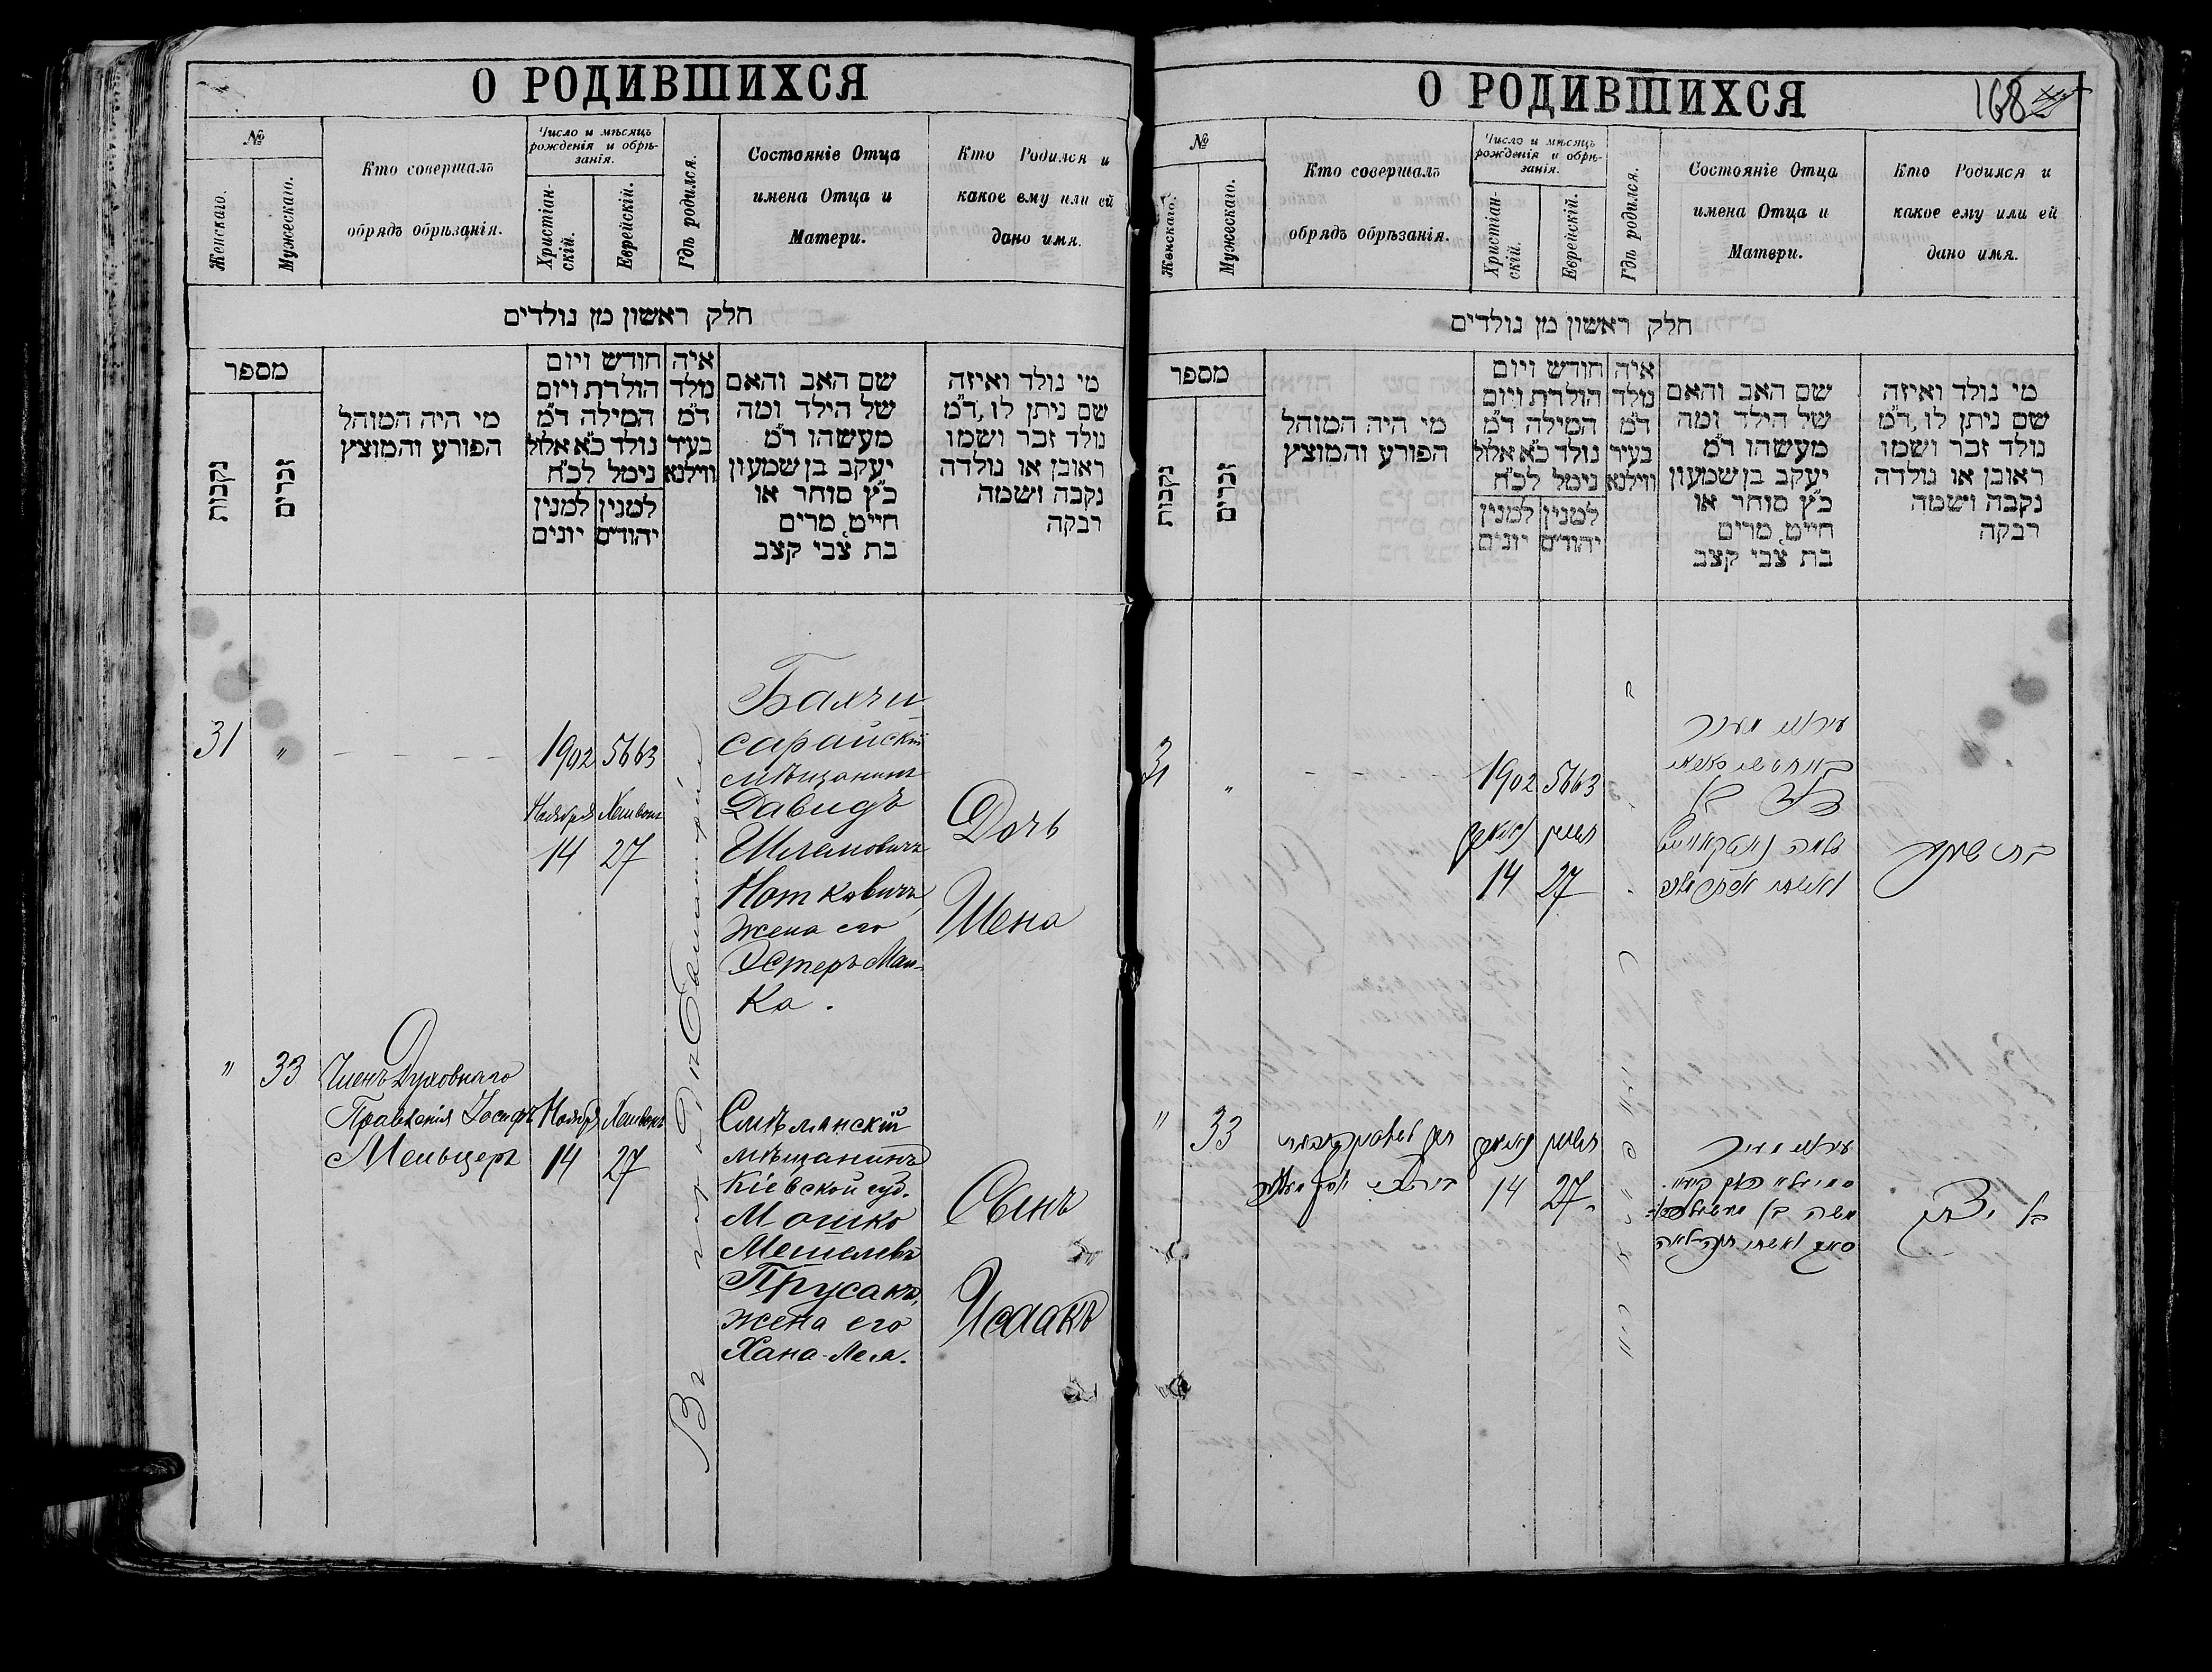 О РОДИВШИХСЯ
№
Женскаго.
Мужескаго.
Кто совершалъ
обрядъ обрѣзанія.
Число и мѣсяцъ
рожденія и обрѣ-
занія.
Христіан-
скій.
Еврейскій.
Гдѣ родился.
Состояніе Отца
имена Отца и
Матери.
Кто Родился и
какое ему или ей
дано имя.
חלק ראשון מן נולדים
מספר
נקבות
זכרים
מי היה המוהל
הפורע והמוצץ
חודש ויום
הולדת ויום
המילה ד״מ
נולד כ״א אלול
נימל לכ״ח
למנין
יהודים
למנין
יונים
איה
נולד
ד״מ
בעיר
ווילנא
שם האב והאם
של הילד ומה
מעשהו ד״מ
יעקב בן שמעון
כ״ץ סוחר או
חייט, מרים
בת צבי קצב
מי נולד ואיזה
שם ניתן לו, ד״מ
נולד זכר ושמו
ראובן או נולדה
נקבה ושמה
רבקה
31 "
1902 5663
Ноября Хешвонъ
14 27
Бахчи
сарайскій
мѣщанинъ
Давидъ
Шлемовичъ
Ноткевичъ,
жена его
Эстеръ Мал-
ка.
Дочь
Шена
Въ городѣ Евпаторіи
" 33
Членъ Духовнаго
Правленія Іосифъ
Мельцеръ
Ноябр Хешвонъ
14 27
Смѣлянскій
мѣщанинъ
Кіевской губ.
Мошко
Мешелевъ
Прусакъ,
жена его
Хана-Лея.
Сынъ
Исаакъ
О РОДИВШИХСЯ
168
№
Женскаго.
Мужескаго.
Кто совершалъ
обрядъ обрѣзанія.
Число и мѣсяцъ
рожденія и обрѣ-
занія.
Христіан-
скій.
Еврейскій.
Гдѣ родился.
Состояніе Отца
имена Отца и
Матери.
Кто Родился и
какое ему или ей
дано имя.
חלק ראשון מן נולדים
מספר
נקבות
זכרים
מי היה המוהל
הפורע והמוצץ
חודש ויום
הולדת ויום
המילה ד״מ
נולד כ״א אלול
נימל לכ״ח
למנין
יהודים
למנין
יונים
איה
נולד
ד״מ
בעיר
ווילנא
שם האב והאם
של הילד ומה
מעשהו ד״מ
יעקב בן שמעון
כ״ץ סוחר או
חייט, מרים
בת צבי קצב
מי נולד ואיזה
שם ניתן לו, ד״מ
נולד זכר ושמו
ראובן או נולדה
נקבה ושמה
רבקה
31 "
1902 5663
נאיאבר חשון
14 27
דוד בן
" 33
נאיאבר חשון
14 27
משה בן
בן יצחק